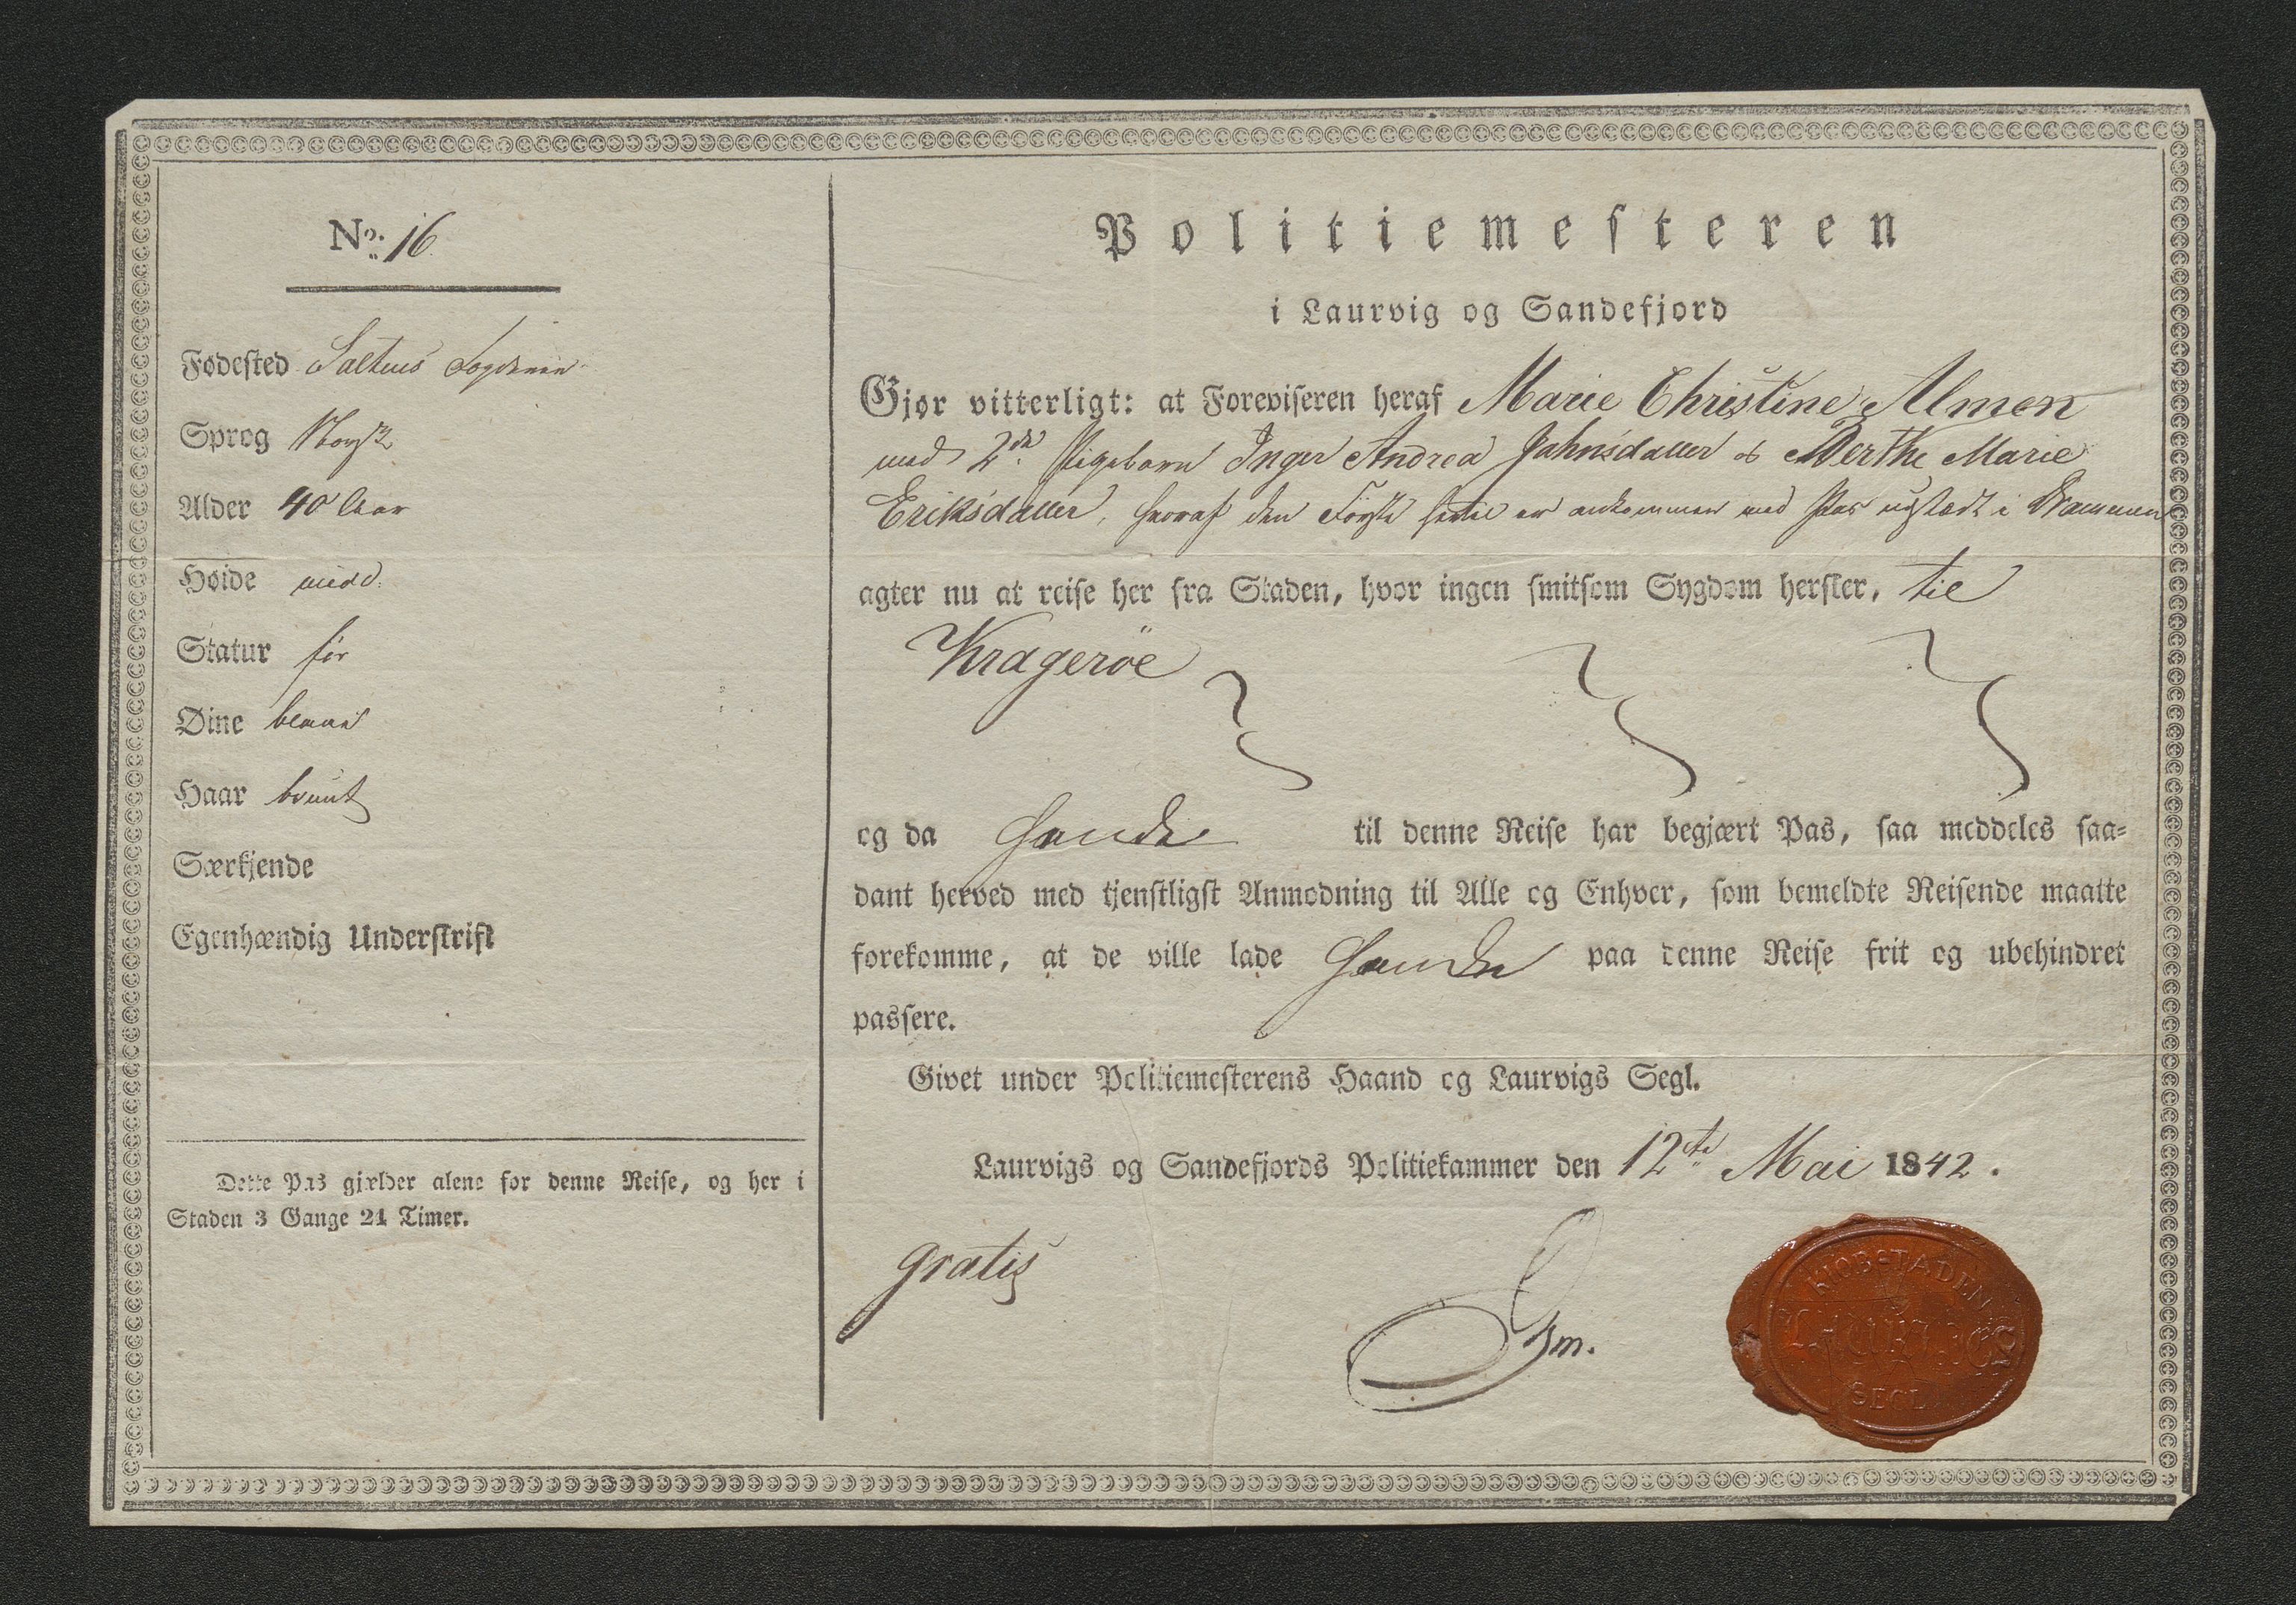 No. 16
Fødested Saltens Fogderie
Sprog Norsk
Alder 40 Aar
Høide midd:
Statur før
Øine blaae
Haar bruunt
Særkjende
Egenhændig Underskrift
Dette Pas gjælder alene for denne Reise, og her i
Staden 3 Gange 24 Timer.
Politiemesteren
i Laurvig og Sandefjord
Gjør vitterligt: at Foreviseren heraf Marie Christine Almen
med 2de Pigebørn Inger Andrea Jahnsdatter og Berthe Marie
Eriksdatter, hvoraf den Første hertil er ankommen med Pas udstædt i Drammen
agter nu at reise her fra Staden, hvor ingen smitsom Sygdom hersker, til
Kragerøe
og da hende til denne Reise har begjært Pas, saa meddeles saa-
dant herved med tjenstligst Anmodning til Alle og Enhver, som bemeldte Reisende maatte
forekomme, at de ville lade hende paa denne Reise frit og ubehindret
passere.
Givet under Politiemesterens Haand og Laurvigs Segl.
Laurvigs og Sandefjords Politiekammer den 12te Mai 1842.
gratis
KIOBSTADEN
LAURVIGS
SEGL